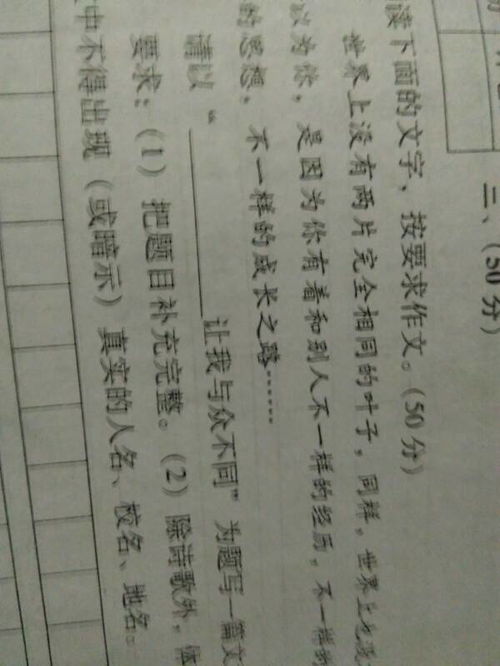 三、（50分）
读下面的文字，按要求作文。（50分）
世界上没有两片完全相同的叶子，同样，世界上也没
以为你，是因为你有着和别人不一样的经历，不一样的
的思想，不一样的成长之路……
请以“________让我与众不同”为题写一篇文
要求：（1）把题目补充完整。（2）除诗歌外，体
中不得出现（或暗示）真实的人名、校名、地名。